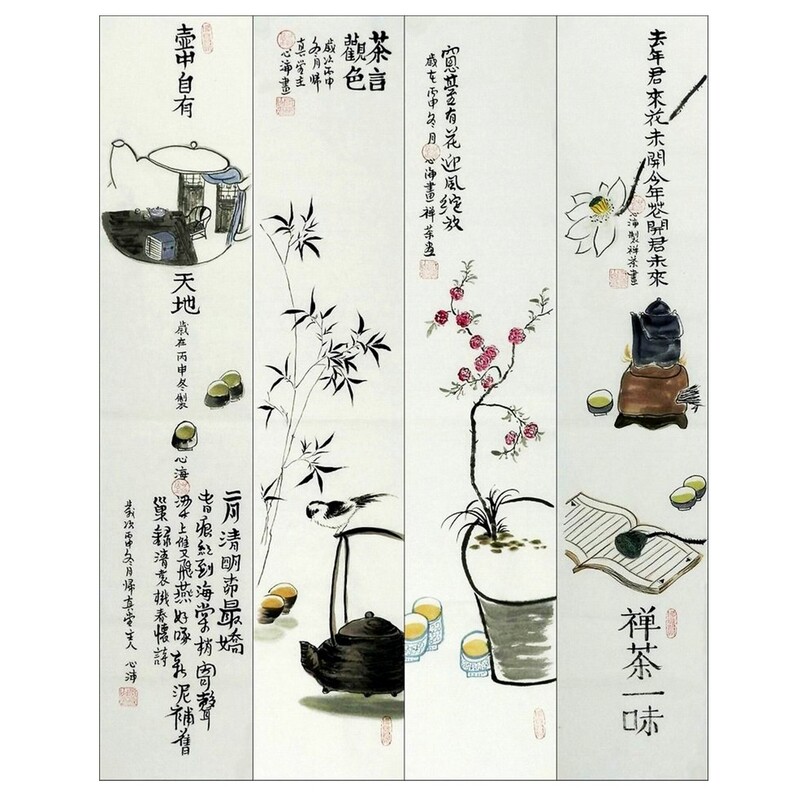 壺中自有
天地
歲在丙申冬製
心海
二月清明柳最嬌
春痕紅到海棠梢寄聲
梁上雙飛燕好啄新泥補舊
巢錄清袁枚春懷詩
歲次丙申冬月歸真堂主人 心海
茶言
觀色
歲次丙申
冬月歸
真堂主
心海畫
窗臺有花迎風綻放
歲在丙申冬月心海畫禪茶畫
去年君來花未開今年花開君未來
心海製禪茶畫
禅茶一味